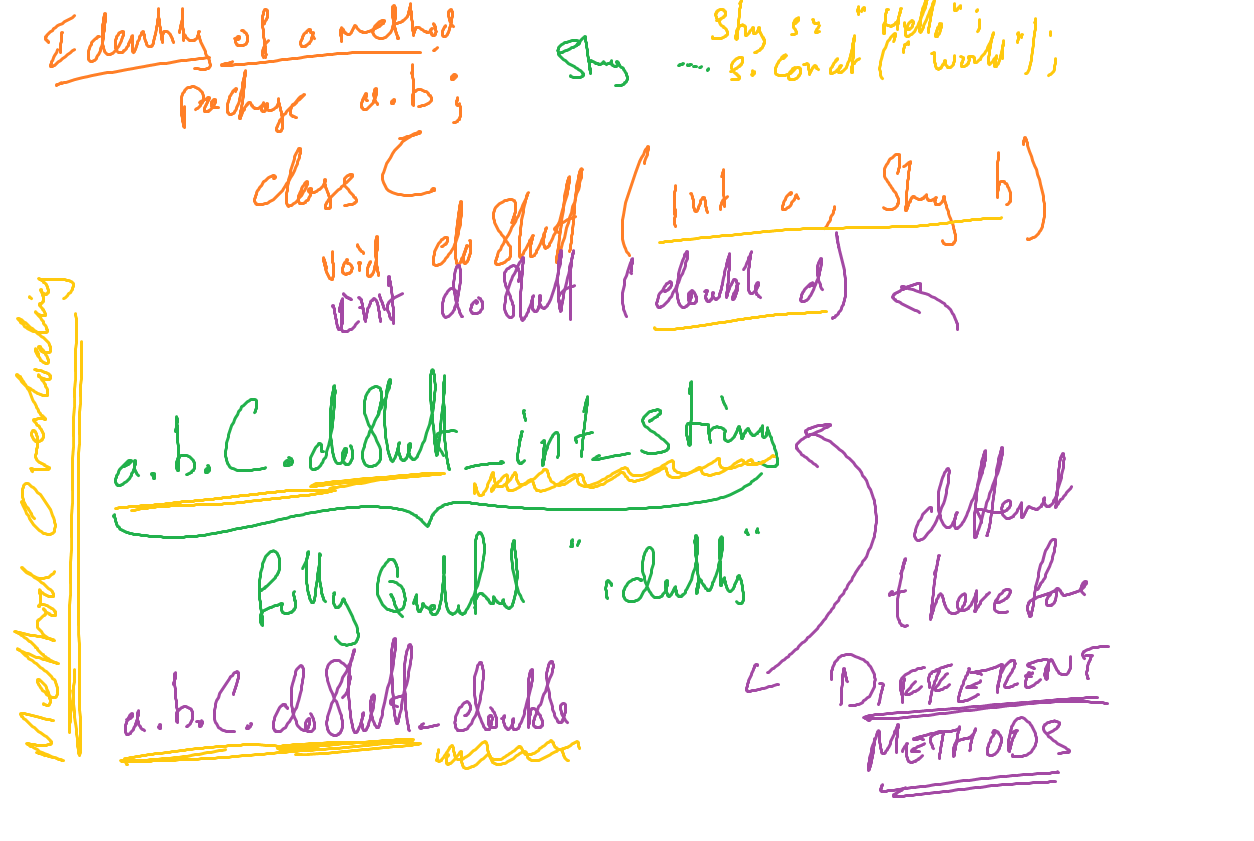 Identity of a method
package a.b;
String s = "Hello";
String .... s.concat(" world");
class C
void doStuff (int a, String b)
int doStuff (double d)
Method Overloading
a.b.C.doStuff_int_String
Fully Qualified "identity"
a.b.C.doStuff_double
different
therefore
DIFFERENT
METHODS